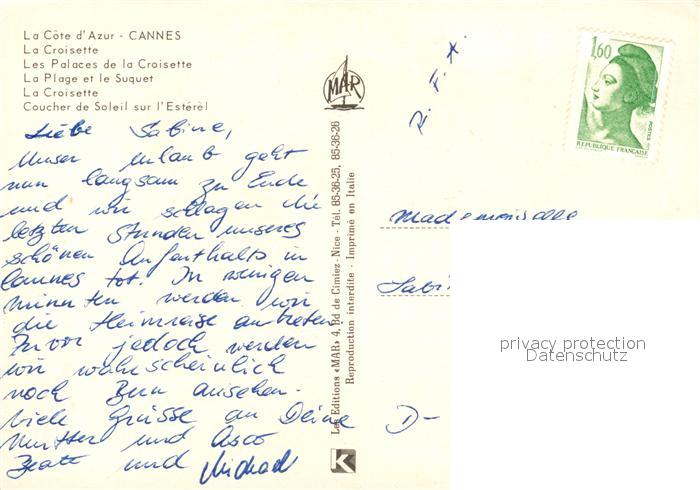 La Côte d'Azur - CANNES
La Croisette
Les Palaces de la Croisette
La Plage et le Suquet
La Croisette
Coucher de Soleil sur l'Estérel
MAR
P. F. A.
1,60
POSTES
REPUBLIQUE FRANÇAISE
Liebe Sabine,
Unser Urlaub geht
nun langsam zu Ende
und wir schlagen die
letzten Stunden unseres
schönen Aufenthalts in
Cannes tot. In wenigen
Minuten werden wir
die Heimreise antreten
Zuvor jedoch werden
wir wahrscheinlich
noch Bern ansehen.
Viele Grüsse an Deine
Mutter und Asco
Beate und Michael
Les Editions «MAR» 4, Bd de Cimiez - Nice - Tél. 85-36-25, 85-36-26
Reproduction interdite - Imprimé en Italie
K
Mademoiselle
Sabi
D-
privacy protection
Datenschutz